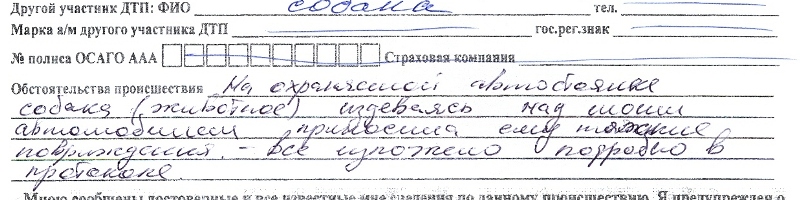 Другой участник ДТП: ФИО собака тел.
Марка а/м другого участника ДТП гос.рег.знак
№ полиса ОСАГО ААА Страховая компания
Обстоятельства происшествия На охраняемой автостоянке
собака (животное) издеваясь над моим
автомобилем приносила ему тяжкие
повреждения. – все изложено подробно в
протоколе.
Мною сообщены достоверные и все известные мне сведения по данному происшествию. Я предупрежден о